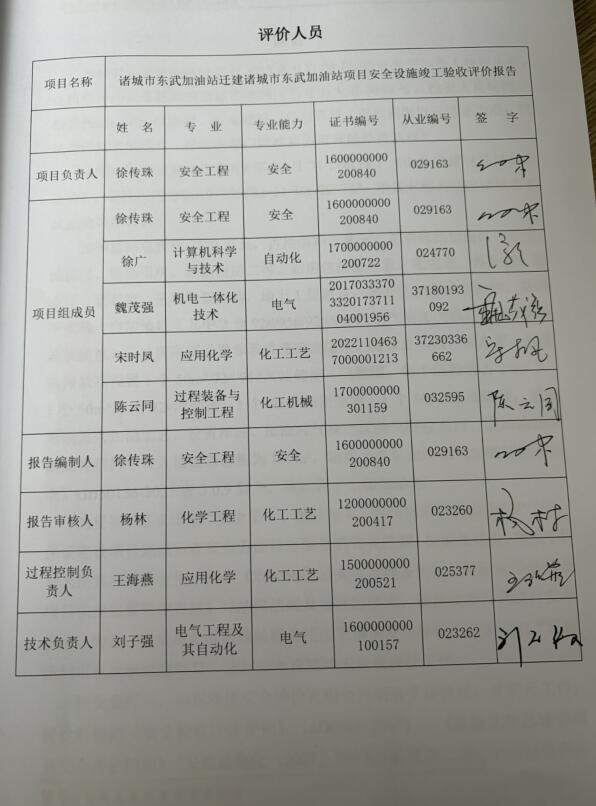 评价人员
项目名称 诸城市东武加油站迁建诸城市东武加油站项目安全设施竣工验收评价报告
姓 名 专 业 专业能力 证书编号 从业编号 签 字
项目负责人 徐传珠 安全工程 安全 1600000000 029163
200840
项目组成员 徐传珠 安全工程 安全 1600000000 029163
200840
徐广 计算机科学 自动化 1700000000 024770
与技术 200722
魏茂强 机电一体化 电气 2017033370 37180193
技术 3320173711 092
04001956
宋时凤 应用化学 化工工艺 2022110463 37230336
7000001213 662
陈云同 过程装备与 化工机械 1700000000 032595 陈云同
控制工程 301159
报告编制人 徐传珠 安全工程 安全 1600000000 029163
200840
报告审核人 杨林 化学工程 化工工艺 1200000000 023260
200417
过程控制负 王海燕 应用化学 化工工艺 1500000000 025377
责人 200521
技术负责人 刘子强 电气工程及 电气 1600000000 023262
其自动化 100157